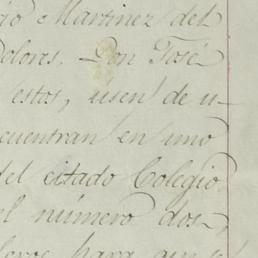 Martinez del
Dolores. Don José
estos, usen de u-
cuentran en uno
del citado Colegio
el número dos,
para que